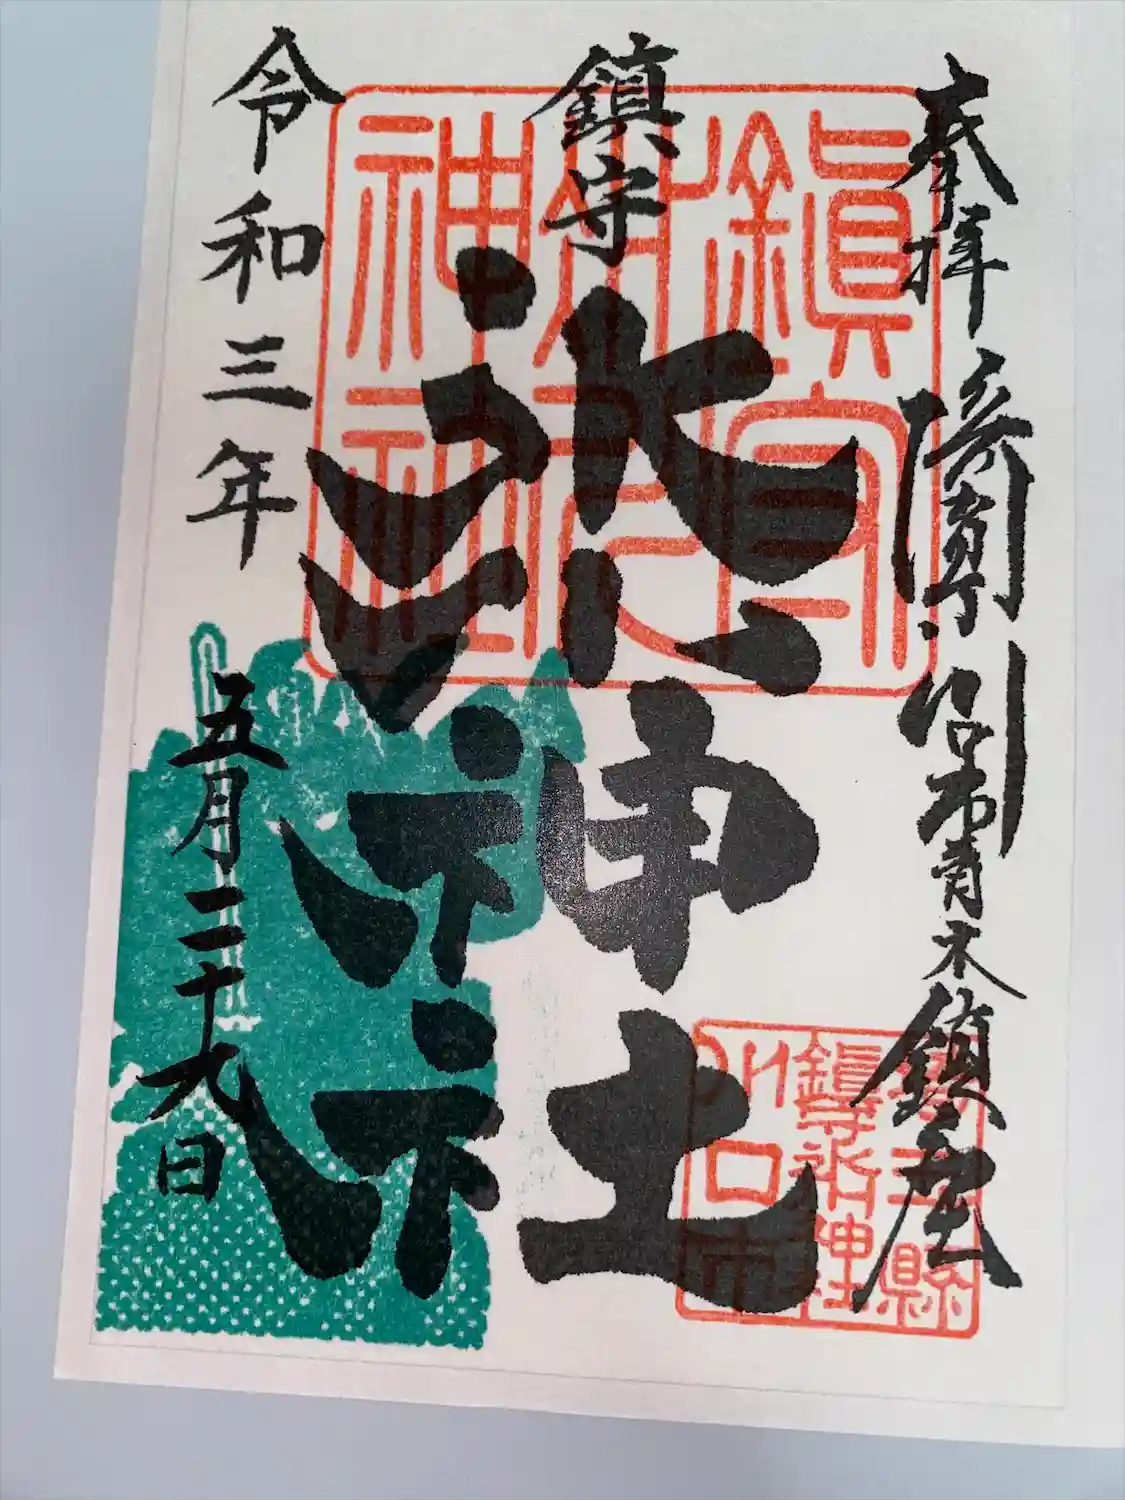 奉拝
埼玉県川口市青木鎮座
鎮守
氷川神社
令和三年
五月二十九日
鎮守
氷川
神社
埼玉縣
鎮守氷川神社
川口市